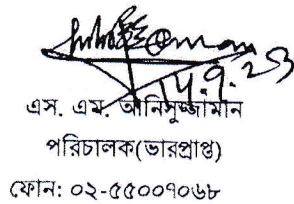 ১৭.৭.২৩
এস. এম. আনিসুজ্জামান
পরিচালক(ভারপ্রাপ্ত)
ফোন: ০২-৫৫০০৭০৬৮